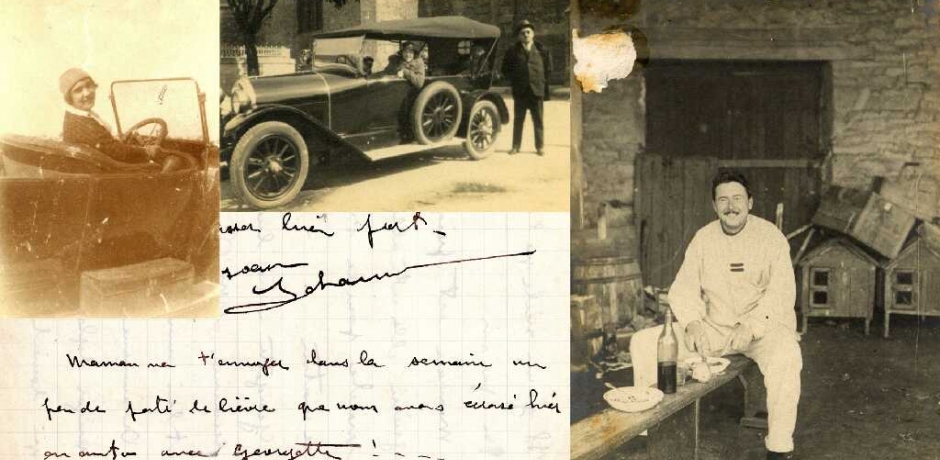 bien fort _
Maman va t'envoyer dans la semaine un
peu de pâté de lièvre que nous avons écrasé hier
en auto avec Georgette ! _ _ _